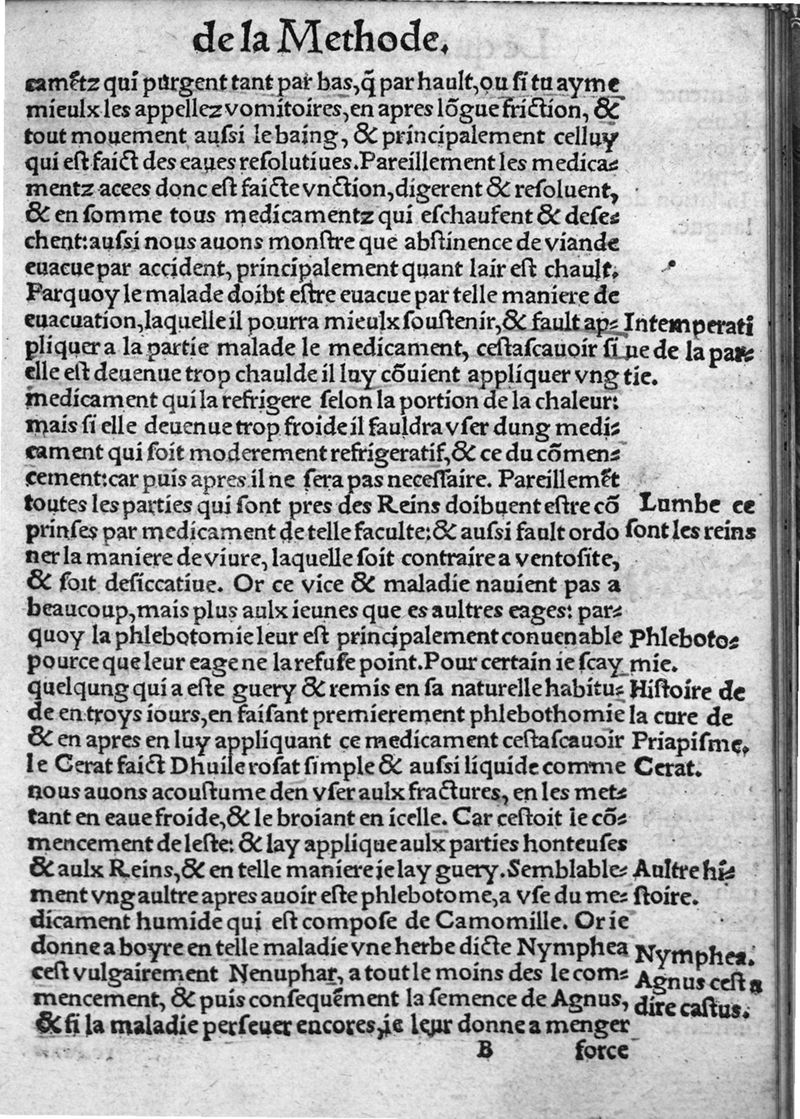 de la Methode.
camẽtz qui purgent tant par bas, q̃ par hault, ou si tu ayme
mieulx les appellez vomitoires, en apres lõgue friction, &
tout mouement aussi le baing, & principalement celluy
qui est faict des eaues resolutiues. Pareillement les medica-
mentz acees donc est faicte vnction, digerent & resoluent,
& en somme tous medicamentz qui eschaufent & dese-
chent: aussi nous auons monstre que abstinence de viande
euacue par accident, principalement quant lair est chault.
Parquoy le malade doibt estre euacue par telle maniere de
euacuation, laquelle il pourra mieulx soustenir, & fault ap-
pliquer a la partie malade le medicament, cestascauoir si
elle est deuenue trop chaulde il luy cõuient appliquer vng
medicament qui la refrigere selon la portion de la chaleur:
mais si elle deuenue trop froide il fauldra vser dung medi-
cament qui soit moderement refrigeratif, & ce du cõmen-
cement: car puis apres il ne sera pas necessaire. Pareillemẽt
toutes les parties qui sont pres des Reins doibuent estre cõ
prinses par medicament de telle faculte: & aussi fault ordo
ner la maniere de viure, laquelle soit contraire a ventosite,
& soit desiccatiue. Or ce vice & maladie nauient pas a
beaucoup, mais plus aulx ieunes que es aultres eages: par-
quoy la phlebotomie leur est principalement conuenable
pource que leur eage ne la refuse point. Pour certain ie scay
quelqung qui a este guery & remis en sa naturelle habitu-
de en troys iours, en faisant premierement phlebothomie
& en apres en luy appliquant ce medicament cestascauoir
le Cerat faict Dhuile rosat simple & aussi liquide comme
nous auons acoustume den vser aulx fractures, en les met-
tant en eaue froide, & le broiant en icelle. Car cestoit le cõ-
mencement de leste: & lay applique aulx parties honteuses
& aulx Reins, & en telle maniere ie lay guery. Semblable-
ment vng aultre apres auoir este phlebotome, a vse du me-
dicament humide qui est compose de Camomille. Or ie
donne a boyre en telle maladie vne herbe dicte Nymphea
cest vulgairement Nenuphar, a tout le moins des le com-
mencement, & puis consequẽment la semence de Agnus,
& si la maladie perseuer encores, ie leur donne a menger
B force
Intemperati
ue de la par-
tie.
Lumbe ce
sont les reins
Phleboto-
mie.
Histoire de
la cure de
Priapisme.
Cerat.
Aultre hi-
stoire.
Nymphea.
Agnus cest a
dire castus.